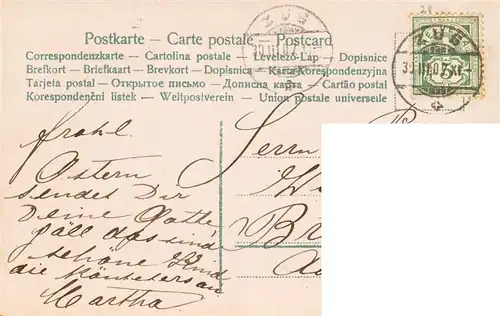 Postkarte – Carte postale – Postcard
Correspondenzkarte – Cartolina postale – Levelező-Lap – Dopisnice
Brefkort – Briefkaart – Brevkort – Dopisnica – Karta Korespondenzyjna
Tarjeta postal – Открытое письмо – Дописна карта – Cartão postal
Korespondenční listek – Weltpostverein – Union postale universelle
ZUG
ZUG
5
Frohl.
Ostern
sendet Dir
Deine Gotte
gäll das sind
schöne
die
Martha
Herrn